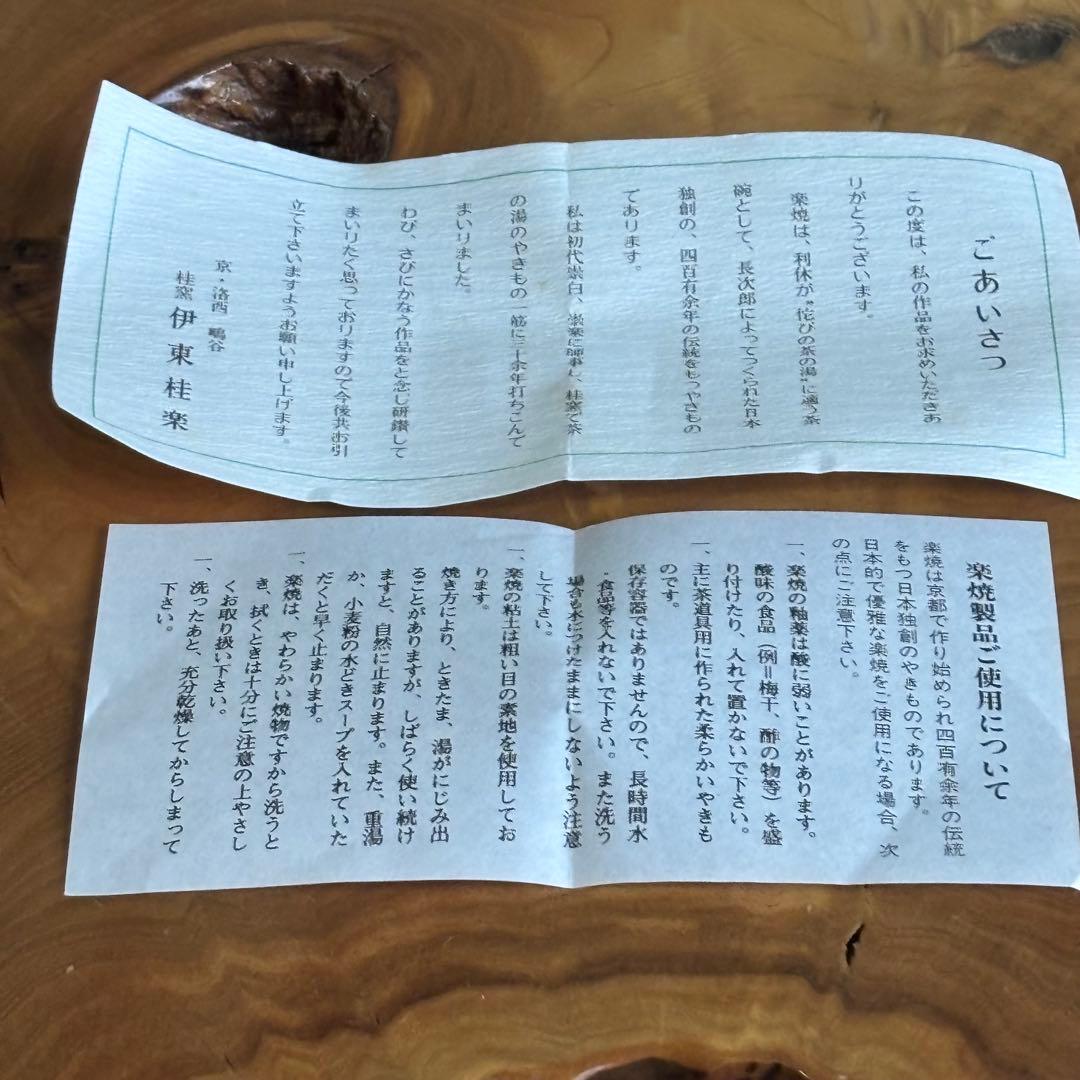 ごあいさつ
この度は、私の作品をお求めいただきあ
りがとうございます。
楽焼は、利休が“侘びの茶の湯”に適う茶
碗として、長次郎によってつくられた日本
独創の、四百有余年の伝統をもつやきもの
であります。
私は初代崇白、崇楽に師事し、桂窯で茶
の湯のやきもの一筋に三十余年打ちこんで
まいりました。
わび、さびにかなう作品をと念じ研鑽して
まいりたく思っておりますので今後共お引
立て下さいますようお願い申し上げます。
京・洛西 鳴谷
桂窯 伊東桂楽
楽焼製品ご使用について
楽焼は京都で作り始められ四百有余年の伝統
をもつ日本独創のやきものであります。
日本的で優雅な楽焼をご使用になる場合、次
の点にご注意下さい。
一、楽焼の釉薬は酸に弱いことがあります。
酸味の食品(例=梅干、酢の物等)を盛
り付けたり、入れて置かないで下さい。
一、主に茶道具用に作られた柔らかいやきも
のです。
保存容器ではありませんので、長時間水
・食品等を入れないで下さい。また洗う
場合も水につけたままにしないよう注意
して下さい。
一、楽焼の粘土は粗い目の素地を使用してお
ります。
焼き方により、ときたま、湯がにじみ出
ることがありますが、しばらく使い続け
ますと、自然に止まります。また、重湯
か、小麦粉の水どきスープを入れていた
だくと早く止まります。
一、楽焼は、やわらかい焼物ですから洗うと
き、拭くときは十分にご注意の上やさし
くお取り扱い下さい。
一、洗ったあと、充分乾燥してからしまって
下さい。